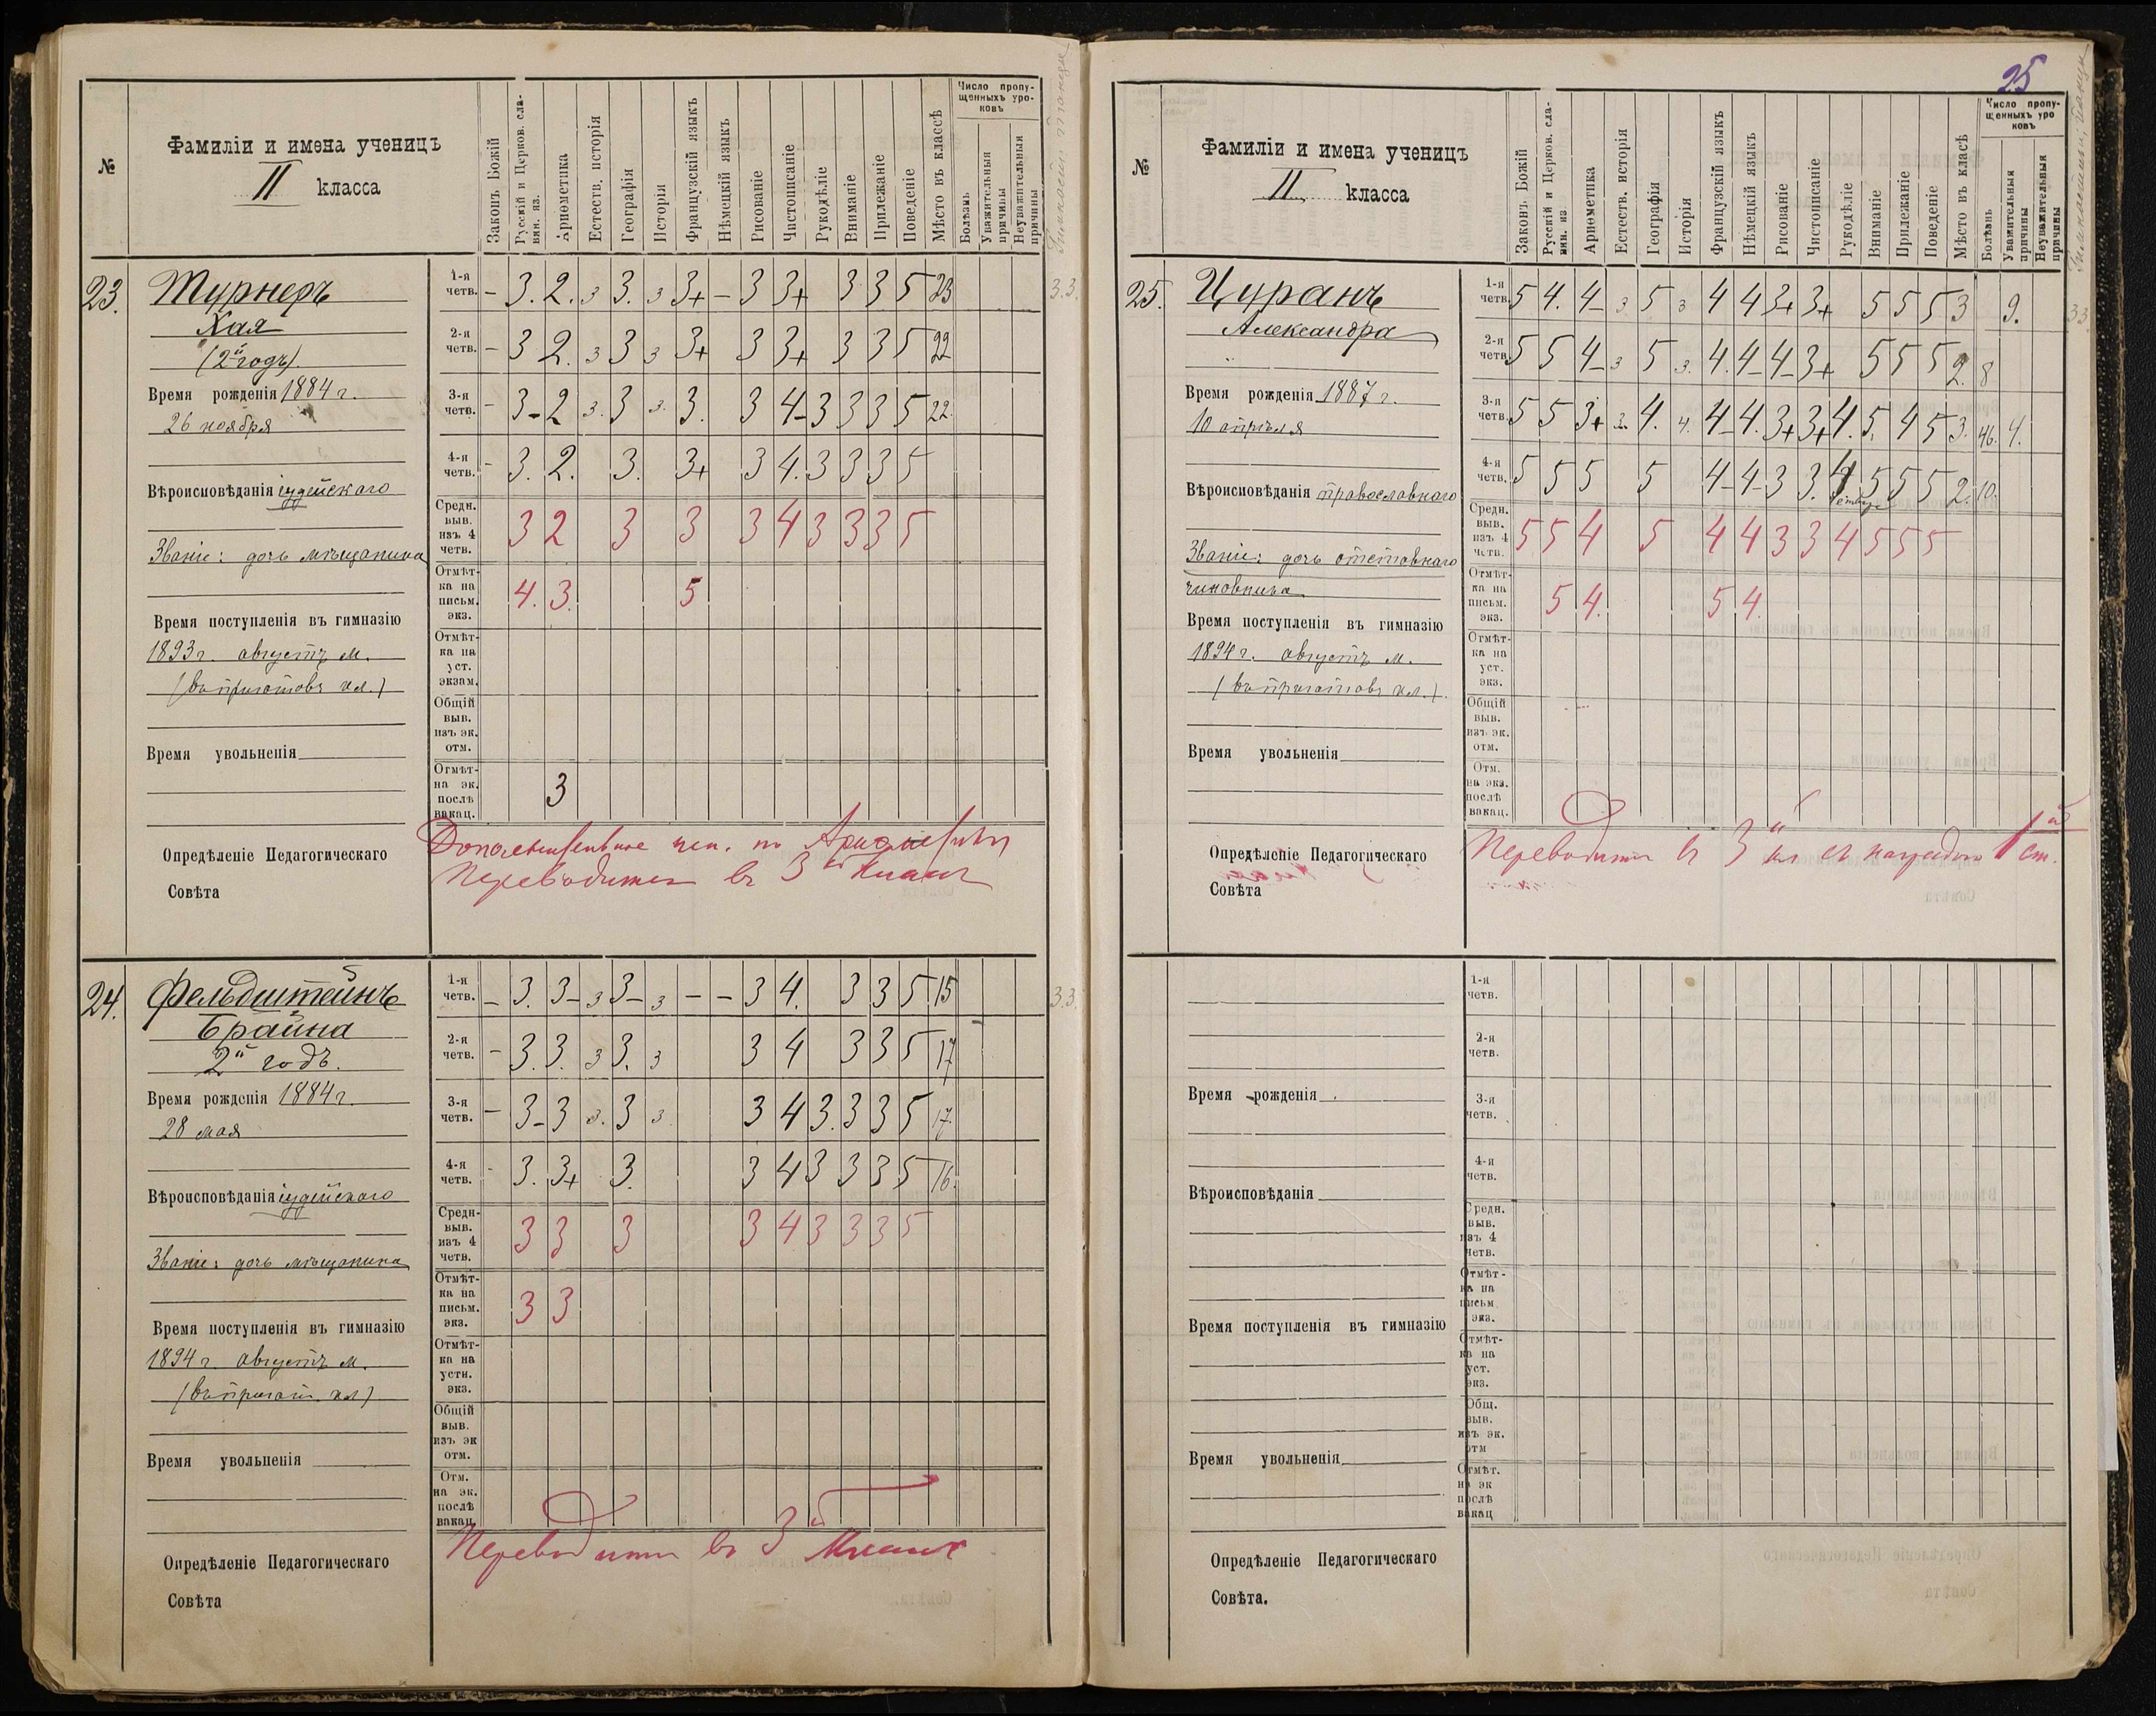 №
Фамиліи и имена ученицъ
II класса
Законъ Божій
Русскій и Церков. сла-
вян. яз.
Ариѳметика
Естеств. исторія
Географія
Исторія
Французскій языкъ
Нѣмецкій языкъ
Рисованіе
Чистописаніе
Рукодѣліе
Вниманіе
Прилежаніе
Поведеніе
Мѣсто въ классѣ
Число пропу-
щенныхъ уро-
ковъ
Болѣзнь
Уважительныя
причины
Неуважительныя
причины
23.
Турнеръ
Хая
(2й годъ).
Время рожденія 1884 г.
26 ноября
Вѣроисповѣданія іудейскаго
Званіе: дочь мѣщанина
Время поступленія въ гимназію
1893 г. августъ м.
(въ приготов. кл.)
Время увольненія
Опредѣленіе Педагогическаго
Совѣта
1-я
четв. – 3. 2. 3 3. 3 3+ – 3 3+ 3 3 5 23 3.3.
2-я
четв. – 3 2. 3 3 3 3+ 3 3+ 3 3 5 22
3-я
четв. – 3– 2 3. 3 3. 3. 3 4– 3 3 3 5 22.
4-я
четв. – 3. 2. 3. 3+ 3 4. 3 3 3 5
Средн.
выв.
изъ 4
четв. 3 2 3 3 3 4 3 3 3 5
Отмѣт-
ка на
письм.
экз. 4. 3. 5
Отмѣт-
ка на
уст.
экзам.
Общій
выв.
изъ эк.
отм.
Отмѣт-
на эк.
послѣ
вакац. 3
Дополнительное исп. по Ариѳметикѣ
Переводится въ 3й классъ
24.
Фельдштейнъ
Брайна
2й годъ.
Время рожденія 1884 г.
28 мая
Вѣроисповѣданія іудейскаго
Званіе: дочь мѣщанина
Время поступленія въ гимназію
1894 г. августъ м.
(въ пригот. кл)
Время увольненія
Опредѣленіе Педагогическаго
Совѣта
1-я
четв. – 3. 3– 3 3– 3 – – 3 4. 3 3 5 15 3.3.
2-я
четв. – 3. 3. 3 3. 3 3 4 3 3 5 17
3-я
четв. – 3– 3 3. 3 3 3 4 3. 3 3 5 17.
4-я
четв. - 3. 3+ 3. 3 4 3 3 3 5 16.
Средн-
выв.
изъ 4
четв. 3 3 3 3 4 3 3 3 5
Отмѣт-
ка на
письм.
экз. 3 3
Отмѣт-
ка на
устн.
экз.
Общій
выв.
изъ эк
отм.
Отм.
на эк.
послѣ
вакац.
Переводится въ 3й классъ
25
№
Фамиліи и имена ученицъ
II класса
Законъ Божій
Русскій и Церков. сла-
вян. яз
Ариѳметика
Естеств. исторія
Географія
Исторія
Французскій языкъ
Нѣмецкій языкъ
Рисованіе
Чистописаніе
Рукодѣліе
Вниманіе
Прилежаніе
Поведеніе
Мѣсто въ класѣ
Число пропу-
щенныхъ уро
ковъ
Болѣзнь
Уважительныя
причины
Неуважительныя
причины
25.
Цуранъ
Александра
Время рожденія 1887 г.
10 апрѣля
Вѣроисповѣданія православнаго
Званіе: дочь отстовнаго
чиновника
Время поступленія въ гимназію
1894 г. августъ м.
(въ приготов. кл.).
Время увольненія
Опредѣленіе Педагогическаго
Совѣта
1-я
четв. 5 4. 4– 3. 5 3 4 4 3+ 3+ 5 5 5 3 9. 33.
2-я
четв. 5 5 4– 3 5 3. 4. 4– 4– 3+ 5 5 5 2. 8
3-я
четв. 5 5 3+ 3. 4. 4. 4– 4. 3+ 3+ 4. 5. 4 5 3. 46. 4.
4-я
четв. 5 5 5 5 4– 4– 3 3. 4 5 5 5 2. 10.
Средн.
выв.
изъ 4
четв. 5 5 4 5 4 4 3 3 4 5 5 5
Отмѣт-
ка на
письм.
экз. 5 4. 5 4.
Отмѣт-
ка на
уст.
экз.
Общій
выв.
изъ эк.
отм.
Отм.
на экз.
послѣ
вакац.
Переводится въ 3й кл съ наградою 1й ст.
Время рожденія
Вѣроисповѣданія
Время поступленія въ гимназію
Время увольненія
Опредѣленіе Педагогическаго
Совѣта.
1-я
четв.
2-я
четв.
3-я
четв.
4-я
четв.
Средн.
выв.
изъ 4
четв.
Отмѣт-
ка на
письм
экз.
Отмѣт-
ка на
уст.
экз.
Общ.
выв.
изъ эк.
отм
Отмѣт.
на эк
послѣ
вакац